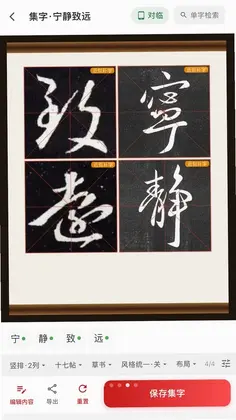 集字·宁静致远
对临
单字检索
寧
静
致
遠
宁 静 致 远
竖排·2列 十七帖 草书 风格统一·关 布局 4/4
编辑内容 导出 重置 保存集字